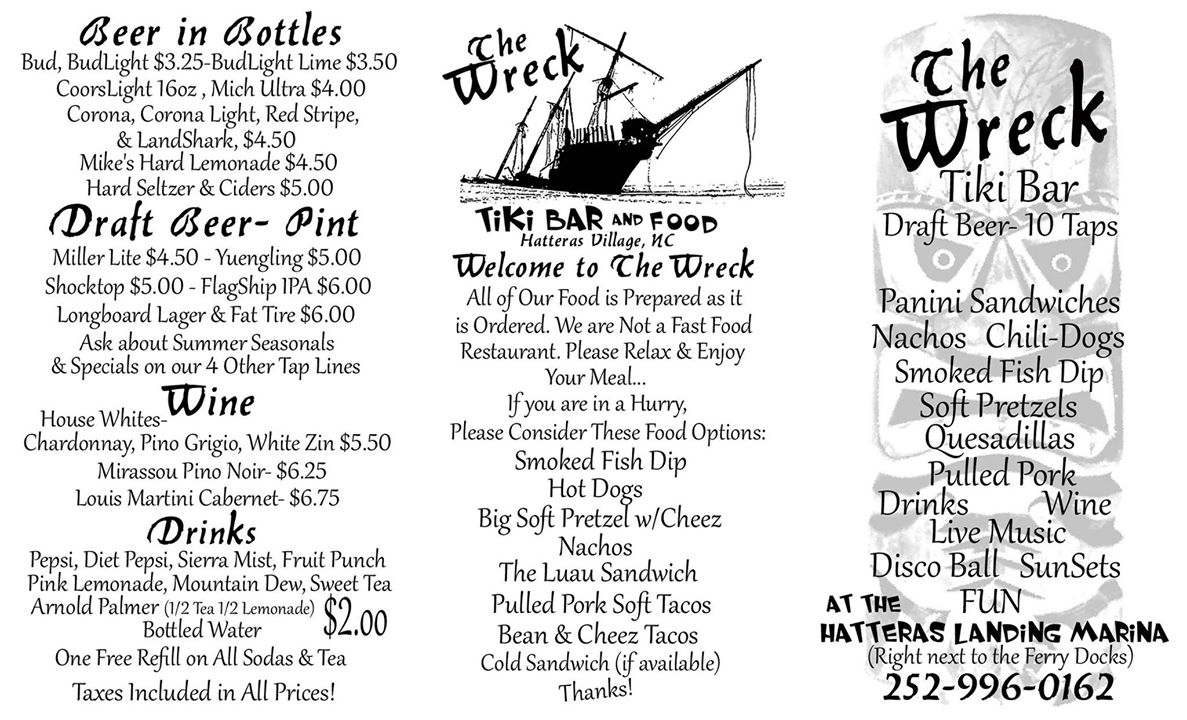 Beer in Bottles
Bud, BudLight $3.25-BudLight Lime $3.50
CoorsLight 16oz , Mich Ultra $4.00
Corona, Corona Light, Red Stripe,
& LandShark, $4.50
Mike's Hard Lemonade $4.50
Hard Seltzer & Ciders $5.00
Draft Beer- Pint
Miller Lite $4.50 - Yuengling $5.00
Shocktop $5.00 - FlagShip IPA $6.00
Longboard Lager & Fat Tire $6.00
Ask about Summer Seasonals
& Specials on our 4 Other Tap Lines
Wine
House Whites-
Chardonnay, Pino Grigio, White Zin $5.50
Mirassou Pino Noir- $6.25
Louis Martini Cabernet- $6.75
Drinks
Pepsi, Diet Pepsi, Sierra Mist, Fruit Punch
Pink Lemonade, Mountain Dew, Sweet Tea
Arnold Palmer (1/2 Tea 1/2 Lemonade) $2.00
Bottled Water
One Free Refill on All Sodas & Tea
Taxes Included in All Prices!
The
Wreck
TiKi BAR AND FOOD
Hatteras Village, NC
Welcome to The Wreck
All of Our Food is Prepared as it
is Ordered. We are Not a Fast Food
Restaurant. Please Relax & Enjoy
Your Meal...
If you are in a Hurry,
Please Consider These Food Options:
Smoked Fish Dip
Hot Dogs
Big Soft Pretzel w/Cheez
Nachos
The Luau Sandwich
Pulled Pork Soft Tacos
Bean & Cheez Tacos
Cold Sandwich (if available)
Thanks!
The
Wreck
Tiki Bar
Draft Beer- 10 Taps
Panini Sandwiches
Nachos Chili-Dogs
Smoked Fish Dip
Soft Pretzels
Quesadillas
Pulled Pork
Drinks Wine
Live Music
Disco Ball SunSets
AT THE FUN
HATTERAS LANDiNG MARiNA
(Right next to the Ferry Docks)
252-996-0162